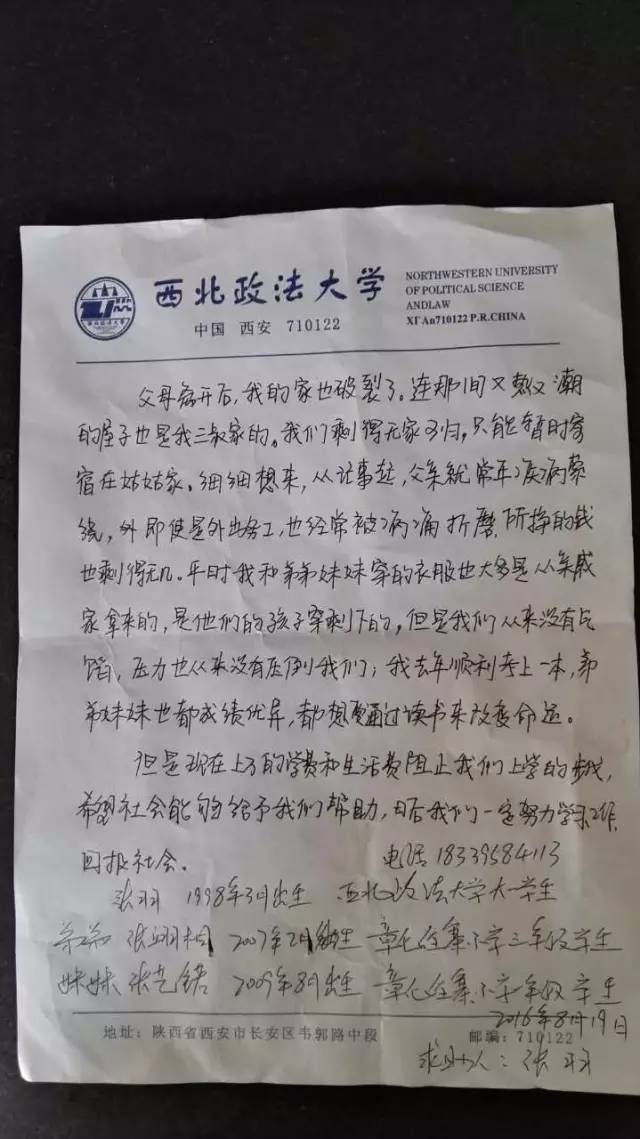 西北政法大学
NORTHWESTERN UNIVERSITY
OF POLITICAL SCIENCE
ANDLAW
XI'An710122 P.R.CHINA
中国 西安 710122
父母离开后,我的家也破裂了。连那间又热又潮
的屋子也是我三叔家的。我们剩得无家可归,只能暂时寄
宿在姑姑家。细细想来,从记事起,父亲就常年疾病缠
绕,外即使是外出务工,也经常被病痛折磨,所挣的钱
也剩得无几。平时我和弟弟妹妹穿的衣服也大多是从亲戚
家拿来的,是他们的孩子穿剩下的,但是我们从来没有气
馅,压力也从来没有压倒我们;我去年顺利考上一本,弟
弟妹妹也都成绩优异,都想要通过读书来改变命运。
但是现在上万的学费和生活费阻止我们上学的步伐,
希望社会能够给予我们帮助,日后我们一定努力学习工作,
回报社会。 电话 18339584113
张羽 1998年3月出生 西北政法大学大一学生
弟弟 张翊桐 2007年2月出生 章化庄寨小学三年级学生
妹妹 张艺锘 2009年8月出生 章化庄寨小学一年级学生
2016年8月19日
地址:陕西省西安市长安区韦郭路中段 邮编:710122
求助人:张羽